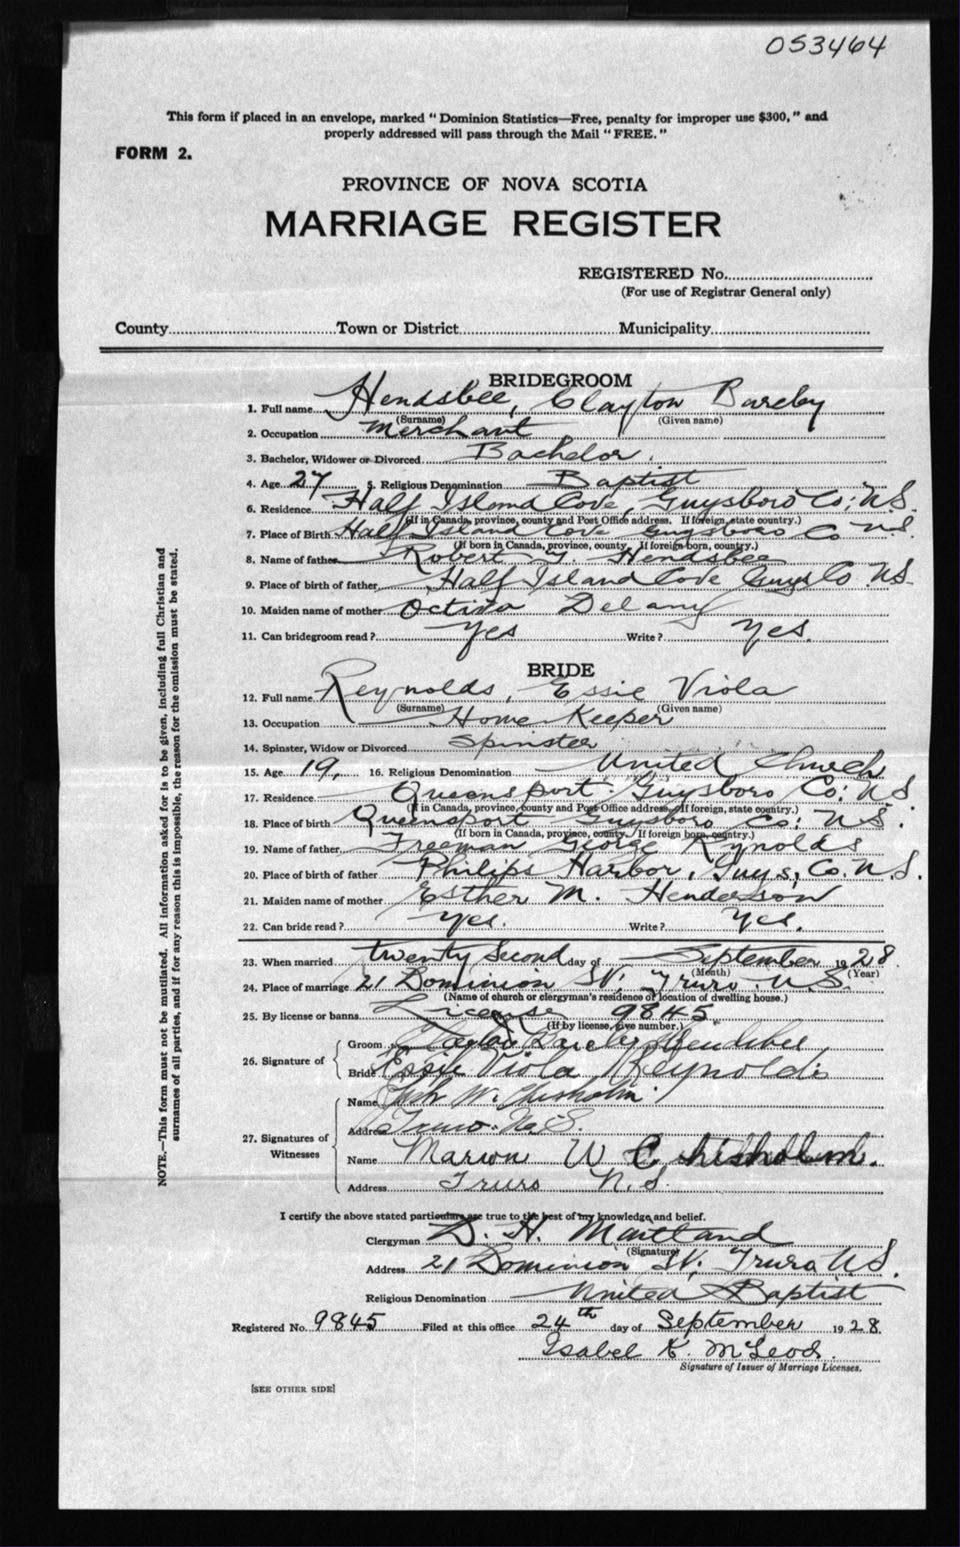 053464
This form if placed in an envelope, marked "Dominion Statistics—Free, penalty for improper use $300," and
properly addressed will pass through the Mail "FREE."
FORM 2.
PROVINCE OF NOVA SCOTIA
MARRIAGE REGISTER
REGISTERED No.
(For use of Registrar General only)
County Town or District Municipality
BRIDEGROOM
1. Full name Hendsbee, Clayton
(Surname) (Given name)
2. Occupation Merchant
3. Bachelor, Widower or Divorced Bachelor.
4. Age 27 5. Religious Denomination Baptist
6. Residence Half Island Cove, Guysboro Co; N.S.
(If in Canada, province, county and Post Office address. If foreign, state country.)
7. Place of Birth Half Island Cove Guysboro Co N.S.
(If born in Canada, province, county. If foreign-born, country.)
8. Name of father Robert Hendsbee
9. Place of birth of father Half Island Cove Guys Co N.S.
10. Maiden name of mother Delany
11. Can bridegroom read? Yes Write? Yes.
BRIDE
12. Full name Reynolds, Essie Viola
(Surname) (Given name)
13. Occupation Home Keeper
14. Spinster, Widow or Divorced Spinster
15. Age 19, 16. Religious Denomination United Church
17. Residence Queensport Guysboro Co: N.S.
(If in Canada, province, county and Post Office address, If foreign, state country.)
18. Place of birth Queensport Guysboro Co: N.S.
(If born in Canada, province, county. If foreign born, country.)
19. Name of father Freeman George Reynolds
20. Place of birth of father Philips Harbor, Guys, Co. N.S.
21. Maiden name of mother Esther M. Henderson
22. Can bride read? Yes. Write? Yes.
23. When married twenty second day of September 1928.
(Month) (Year)
24. Place of marriage 21 Dominion St, Truro N.S.
(Name of church or clergyman's residence or location of dwelling house.)
25. By license or banns License 9845.
(If by license, give number.)
26. Signature of
Groom Clayton Hendsbee
Bride Essie Viola Reynolds
27. Signatures of
Witnesses
Name W. Chisholm
Address Truro N.S.
Name Marion W Chisholm.
Address Truro N.S.
I certify the above stated particulars are true to the best of my knowledge and belief.
Clergyman D. H. Maitland
(Signature)
Address 21 Dominion St. Truro N.S.
Religious Denomination United Baptist
Registered No. 9845 Filed at this office 24th day of September 1928
Isabel K. McLeod.
Signature of Issuer of Marriage Licenses.
[SEE OTHER SIDE]
NOTE.—This form must not be mutilated. All information asked for is to be given, including full Christian and
surnames of all parties, and if for any reason this is impossible, the reason for the omission must be stated.